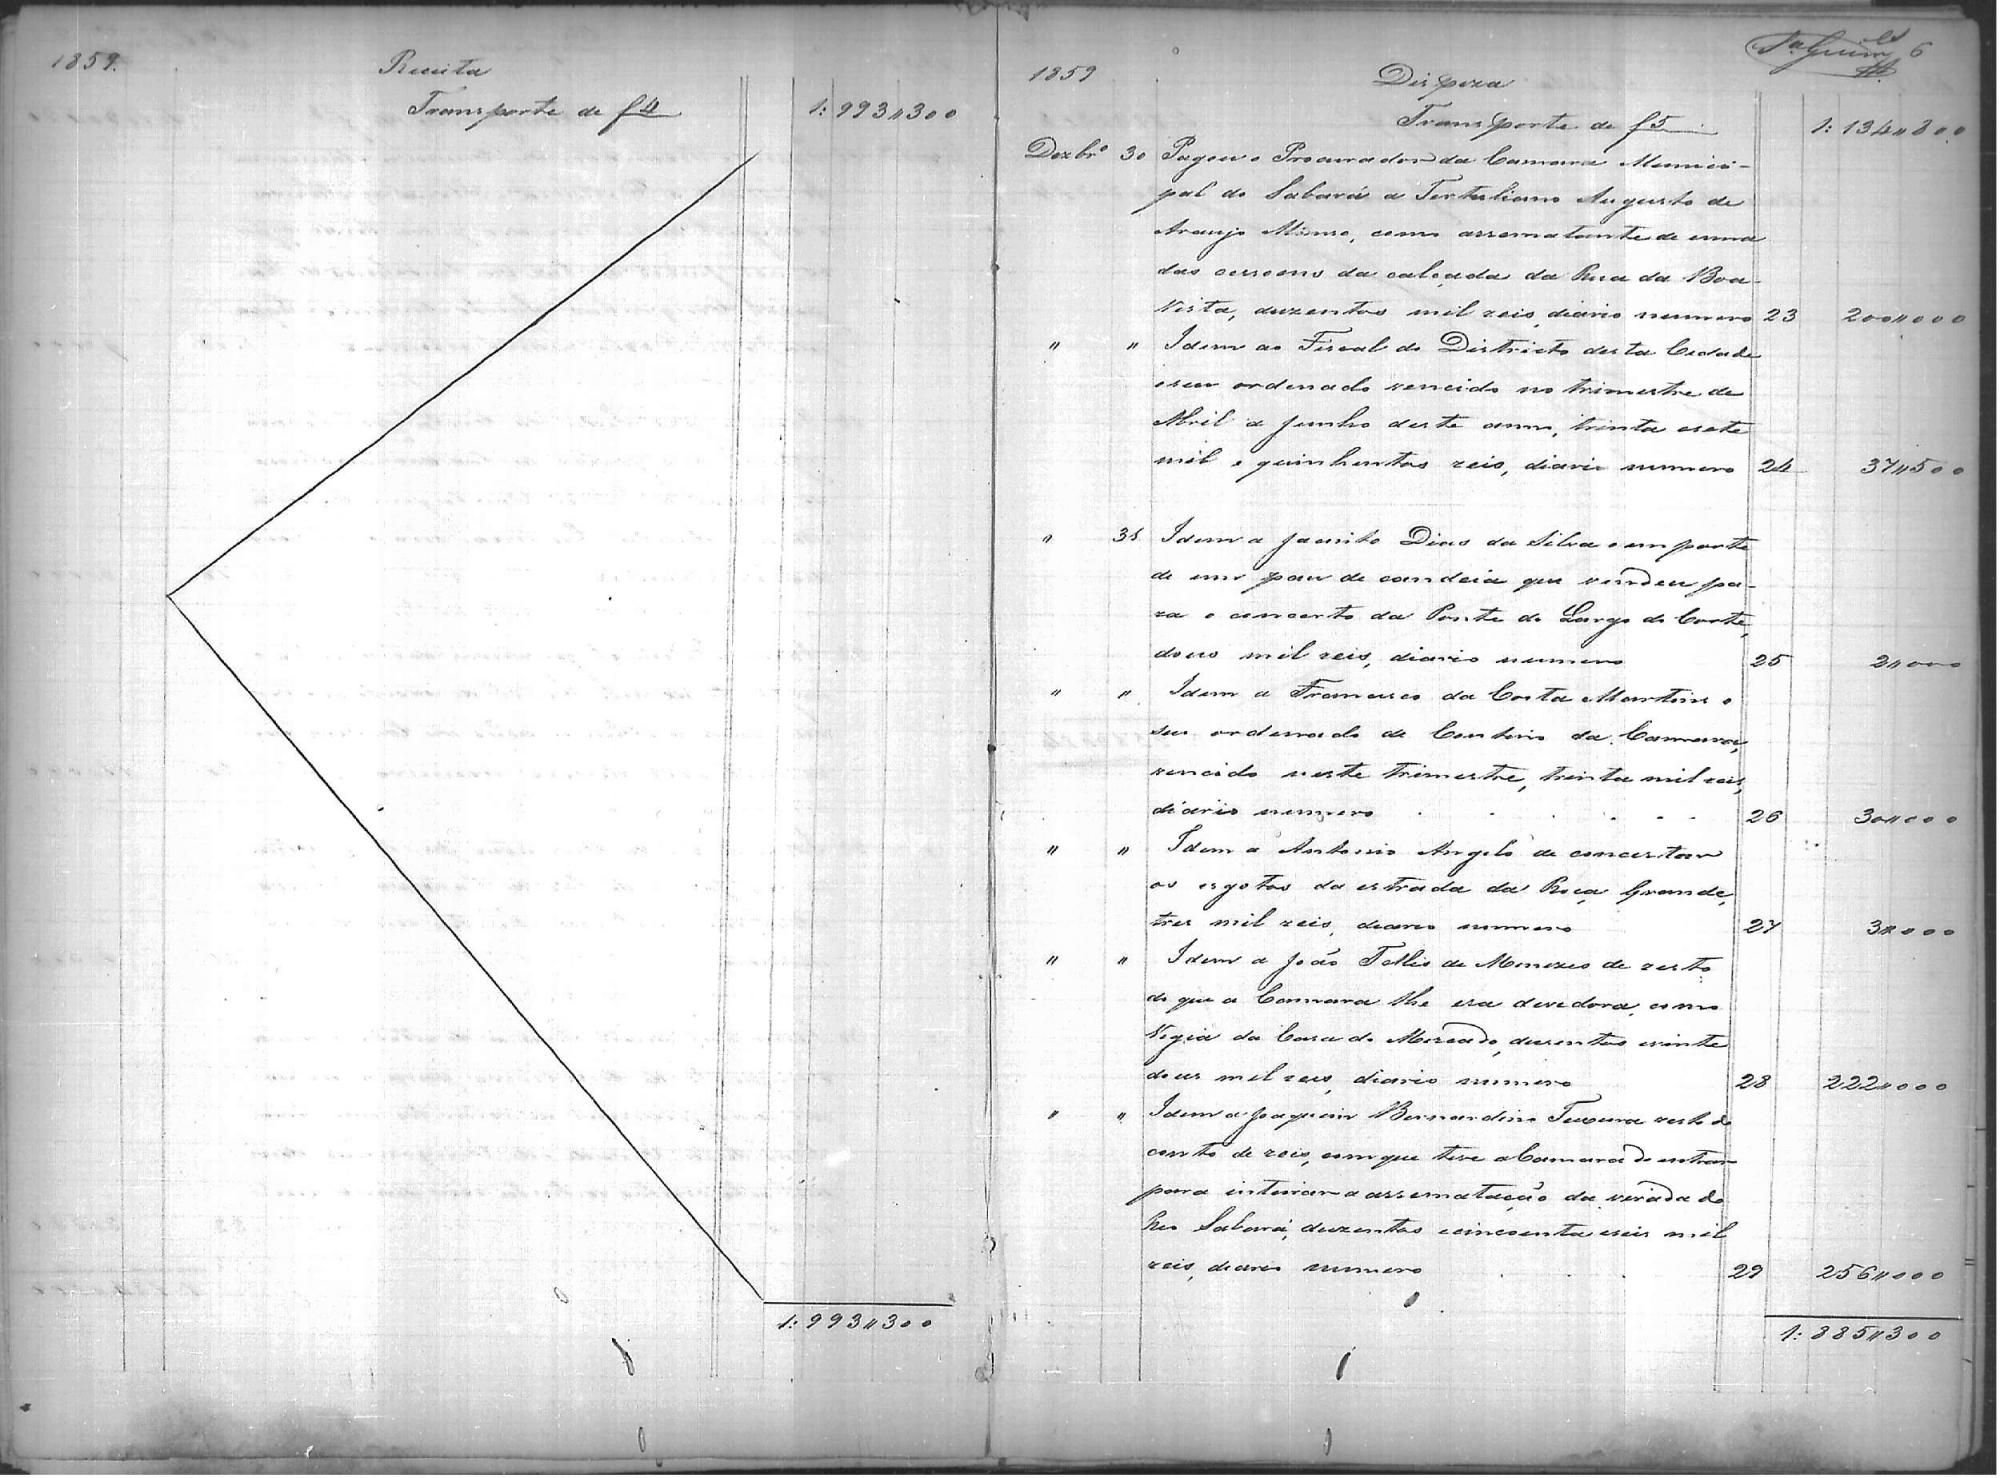 1859.
Receita
Transporte de f 4
1:993,,300
1:993,,300
6
1859
Despeza
Transporte de f 5
1:134,,800
Dezbrº 30 Pagou o Procurador da Camara Munici-
pal do Sabará a Tertuliano Augusto de
Araujo , como arrematante de uma
das da calçada da Rua da Boa-
Vista, duzentos mil reis, diario numero 23 200,,000
" " Idem ao Fiscal do Districto desta Cidade
o seu ordenado vencido no trimestre de
Abril a Junho deste anno, trinta esete
mil e quinhentos reis, diario numero 24 37,,500
" 31 Idem a Jacinto Dias da Silva o importe
de um pau de candeia que vendeu pa-
ra o concerto da Ponte do Largo do Corte,
dous mil reis, diario numero 25 2,,000
" " Idem a Francisco da Costa Martins o
seu ordenado de Contino da Camara,
vencido neste trimestre, trinta mil reis,
diario numero . . . . . . 26 30,,000
" " Idem a Antonio Angelo de concertar
os esgotos da estrada da Roça Grande,
tres mil reis, diario numero 27 3,,000
" " Idem a João Telles de Menezes de resto
do que a Camara lhe era devedora, como
Vigia da Casa do Mercado, duzentos evinte
dous mil reis, diario numero 28 222,,000
" " Idem a Joaquim Bernardino Teixeira resto do
conto de reis, comque teve a Camara de entrar
para inteirar a arrematação da virada do
Rio Sabará, duzentos ecincoenta eseis mil
reis, diario numero . . 29 256,,000
1:885,,300